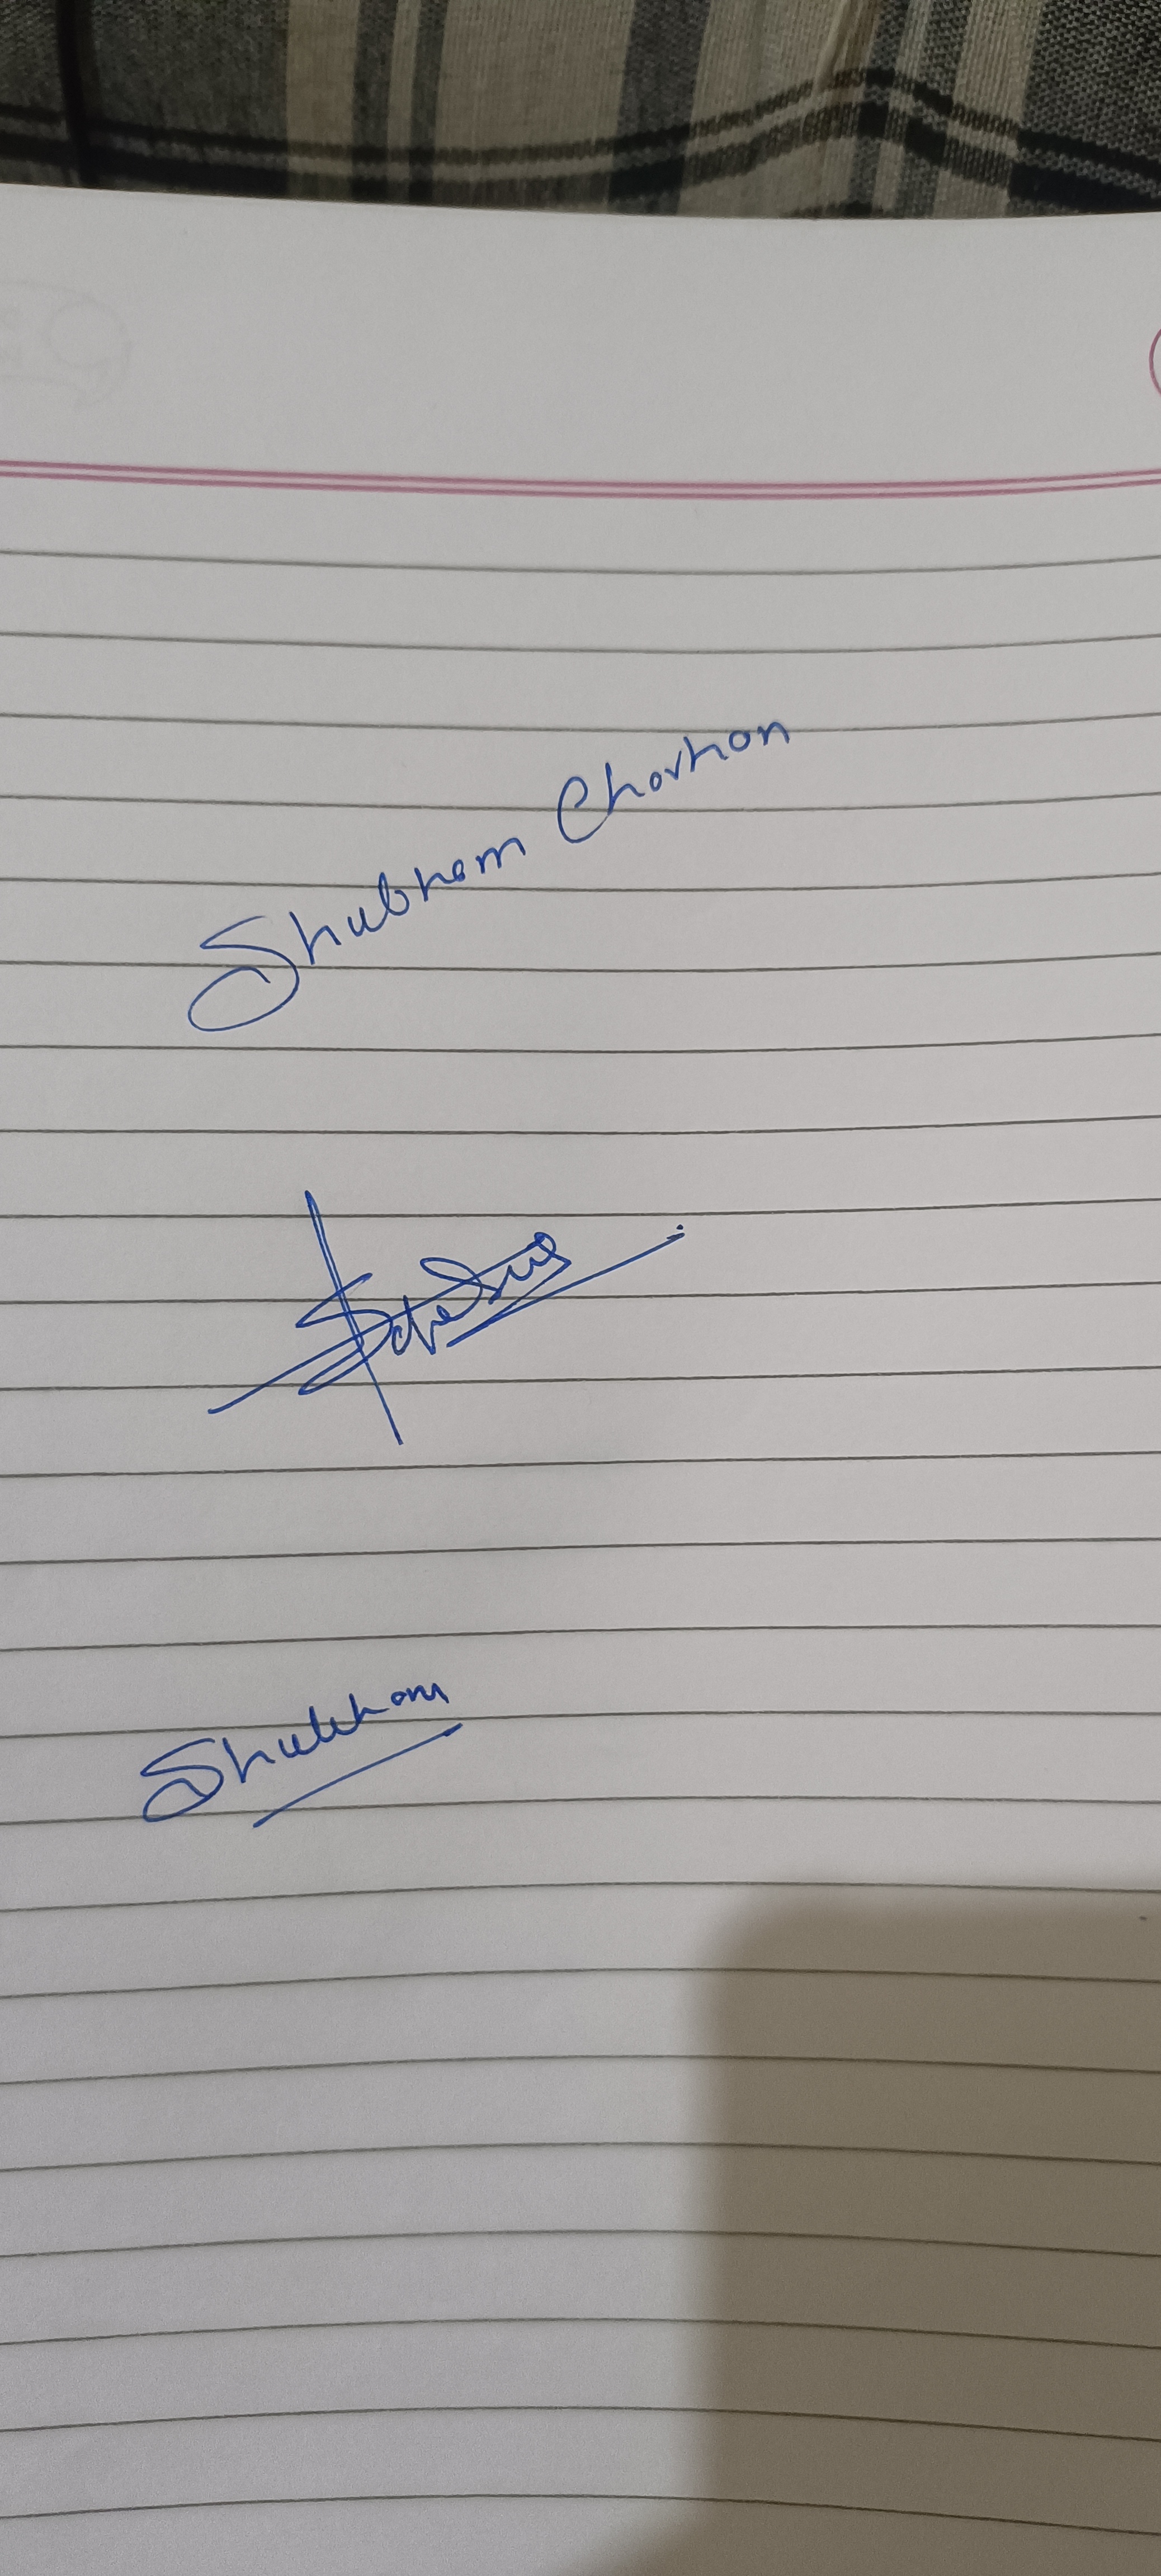 Shubham Chavhan
Shubham